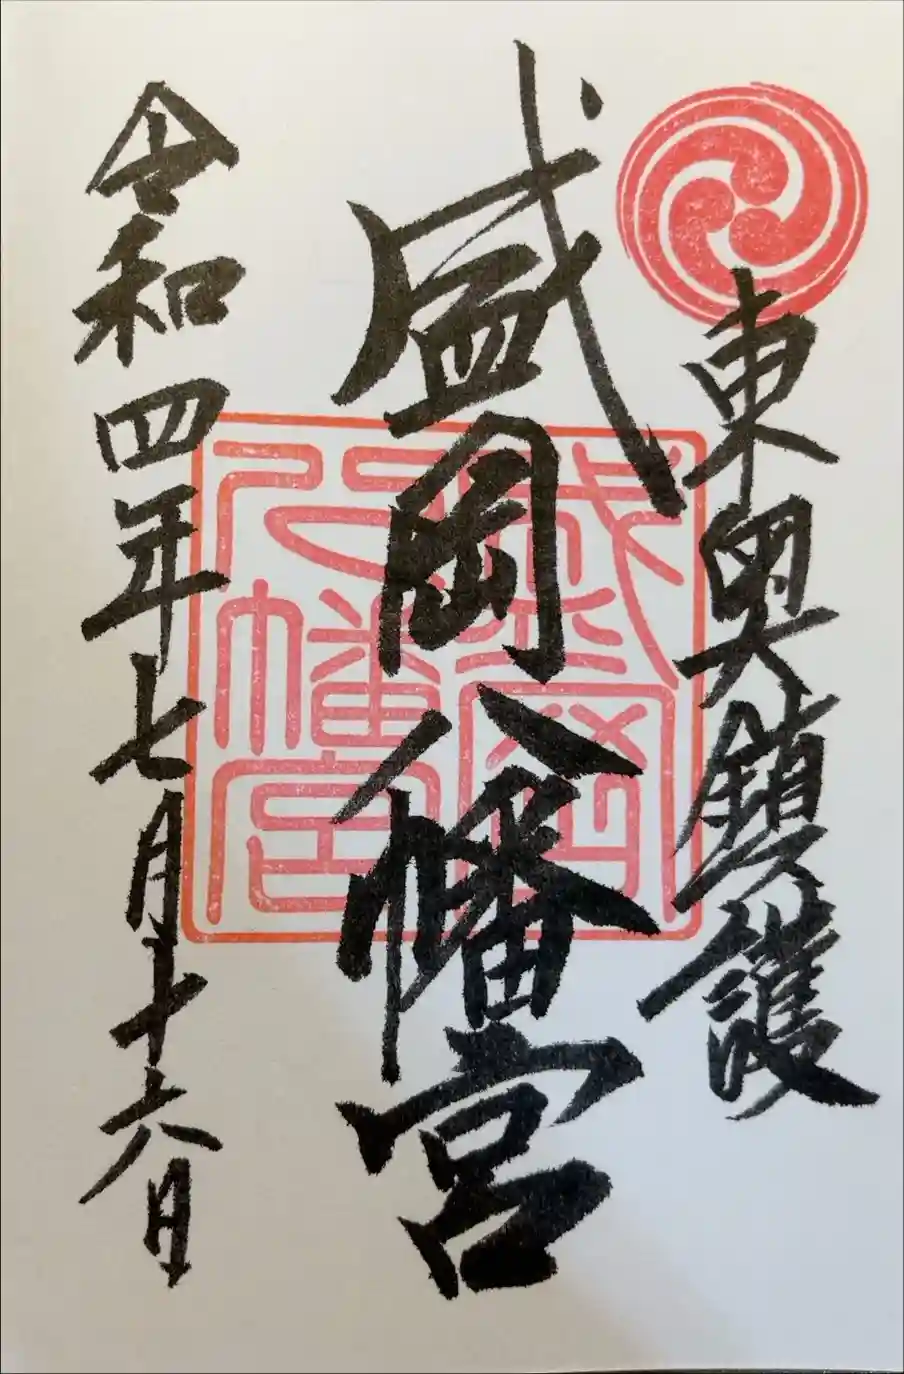 東奥鎮護
盛岡八幡宮
盛岡八幡宮
令和四年七月十六日